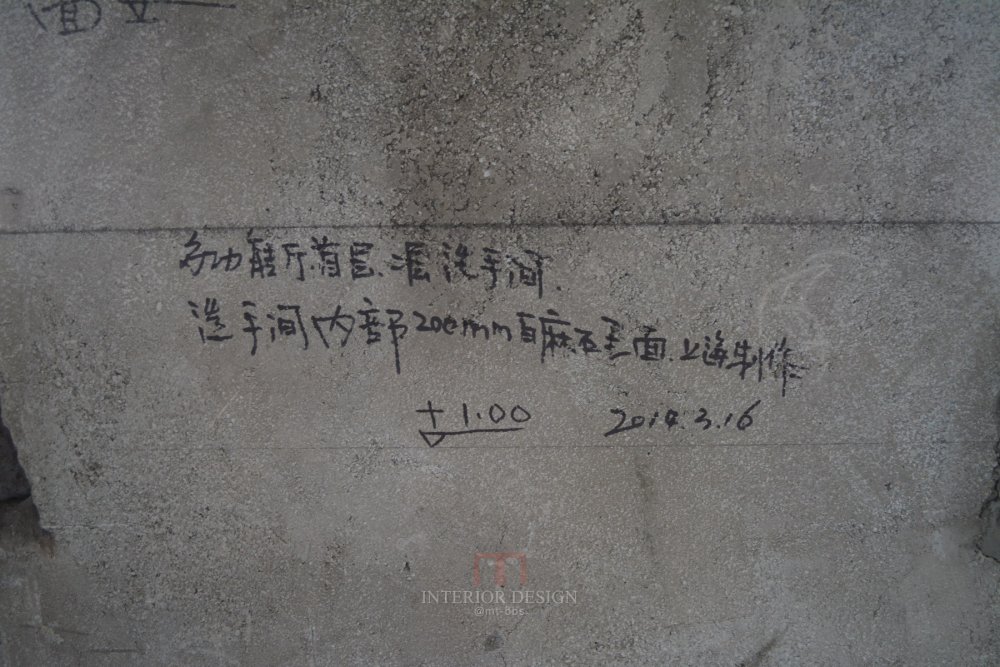 面立
多功能厅首层.洗手间.
洗手间内部200mm白麻石毛面.上海制作
+1.00
2014.3.16
INTERIOR DESIGN
@mt-bbs